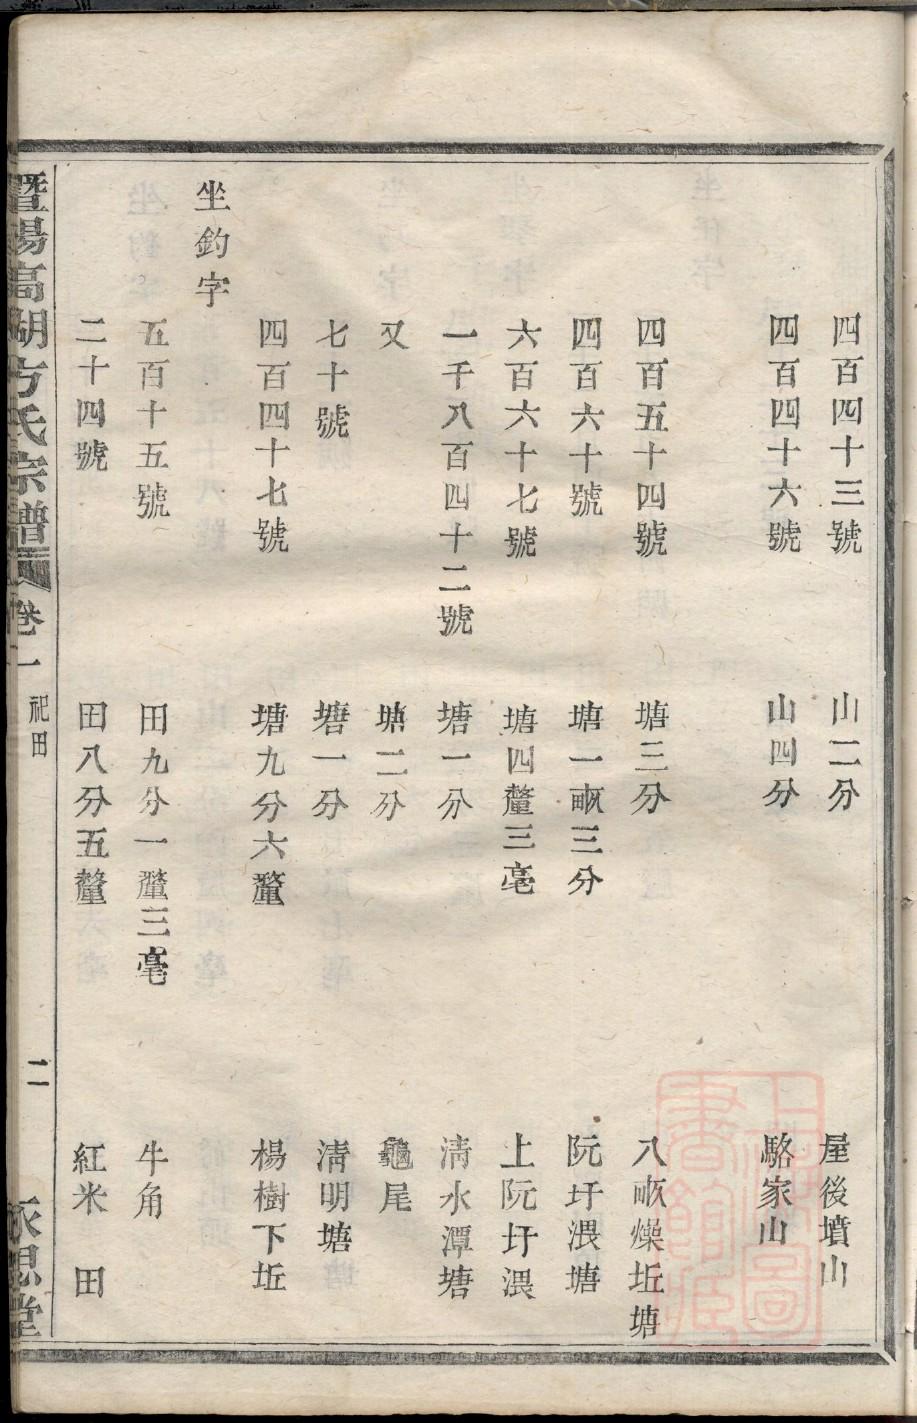 四百四十三號 山二分 屋後墳山
四百四十六號 山四分 駱家山
四百五十四號 塘三分 八畝燥坵塘
四百六十號 塘一畝三分 阮圩渨塘
六百六十七號 塘四釐三毫 上阮圩渨
一千八百四十二號 塘一分 清水潭塘
又 塘二分 龜尾
七十號 塘一分 清明塘
四百四十七號 塘九分六釐 楊樹下坵
坐釣字
五百十五號 田九分一釐三毫 牛角
二十四號 田八分五釐 紅米田
暨陽高湖方氏宗譜 卷一 祀田 二 永思堂
上海圖書館藏